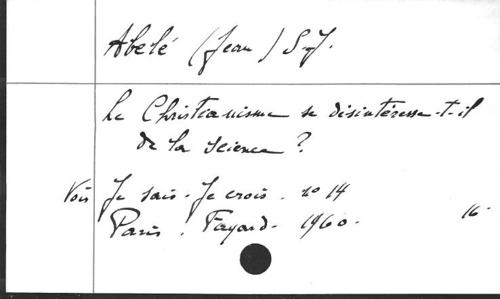 Abelé (Jean) S.J.
Le Christianisme se désintéresse-t-il
de la science ?
Voir Je sais - Je crois . no 14
Paris . Fayard - 1960 . 16-